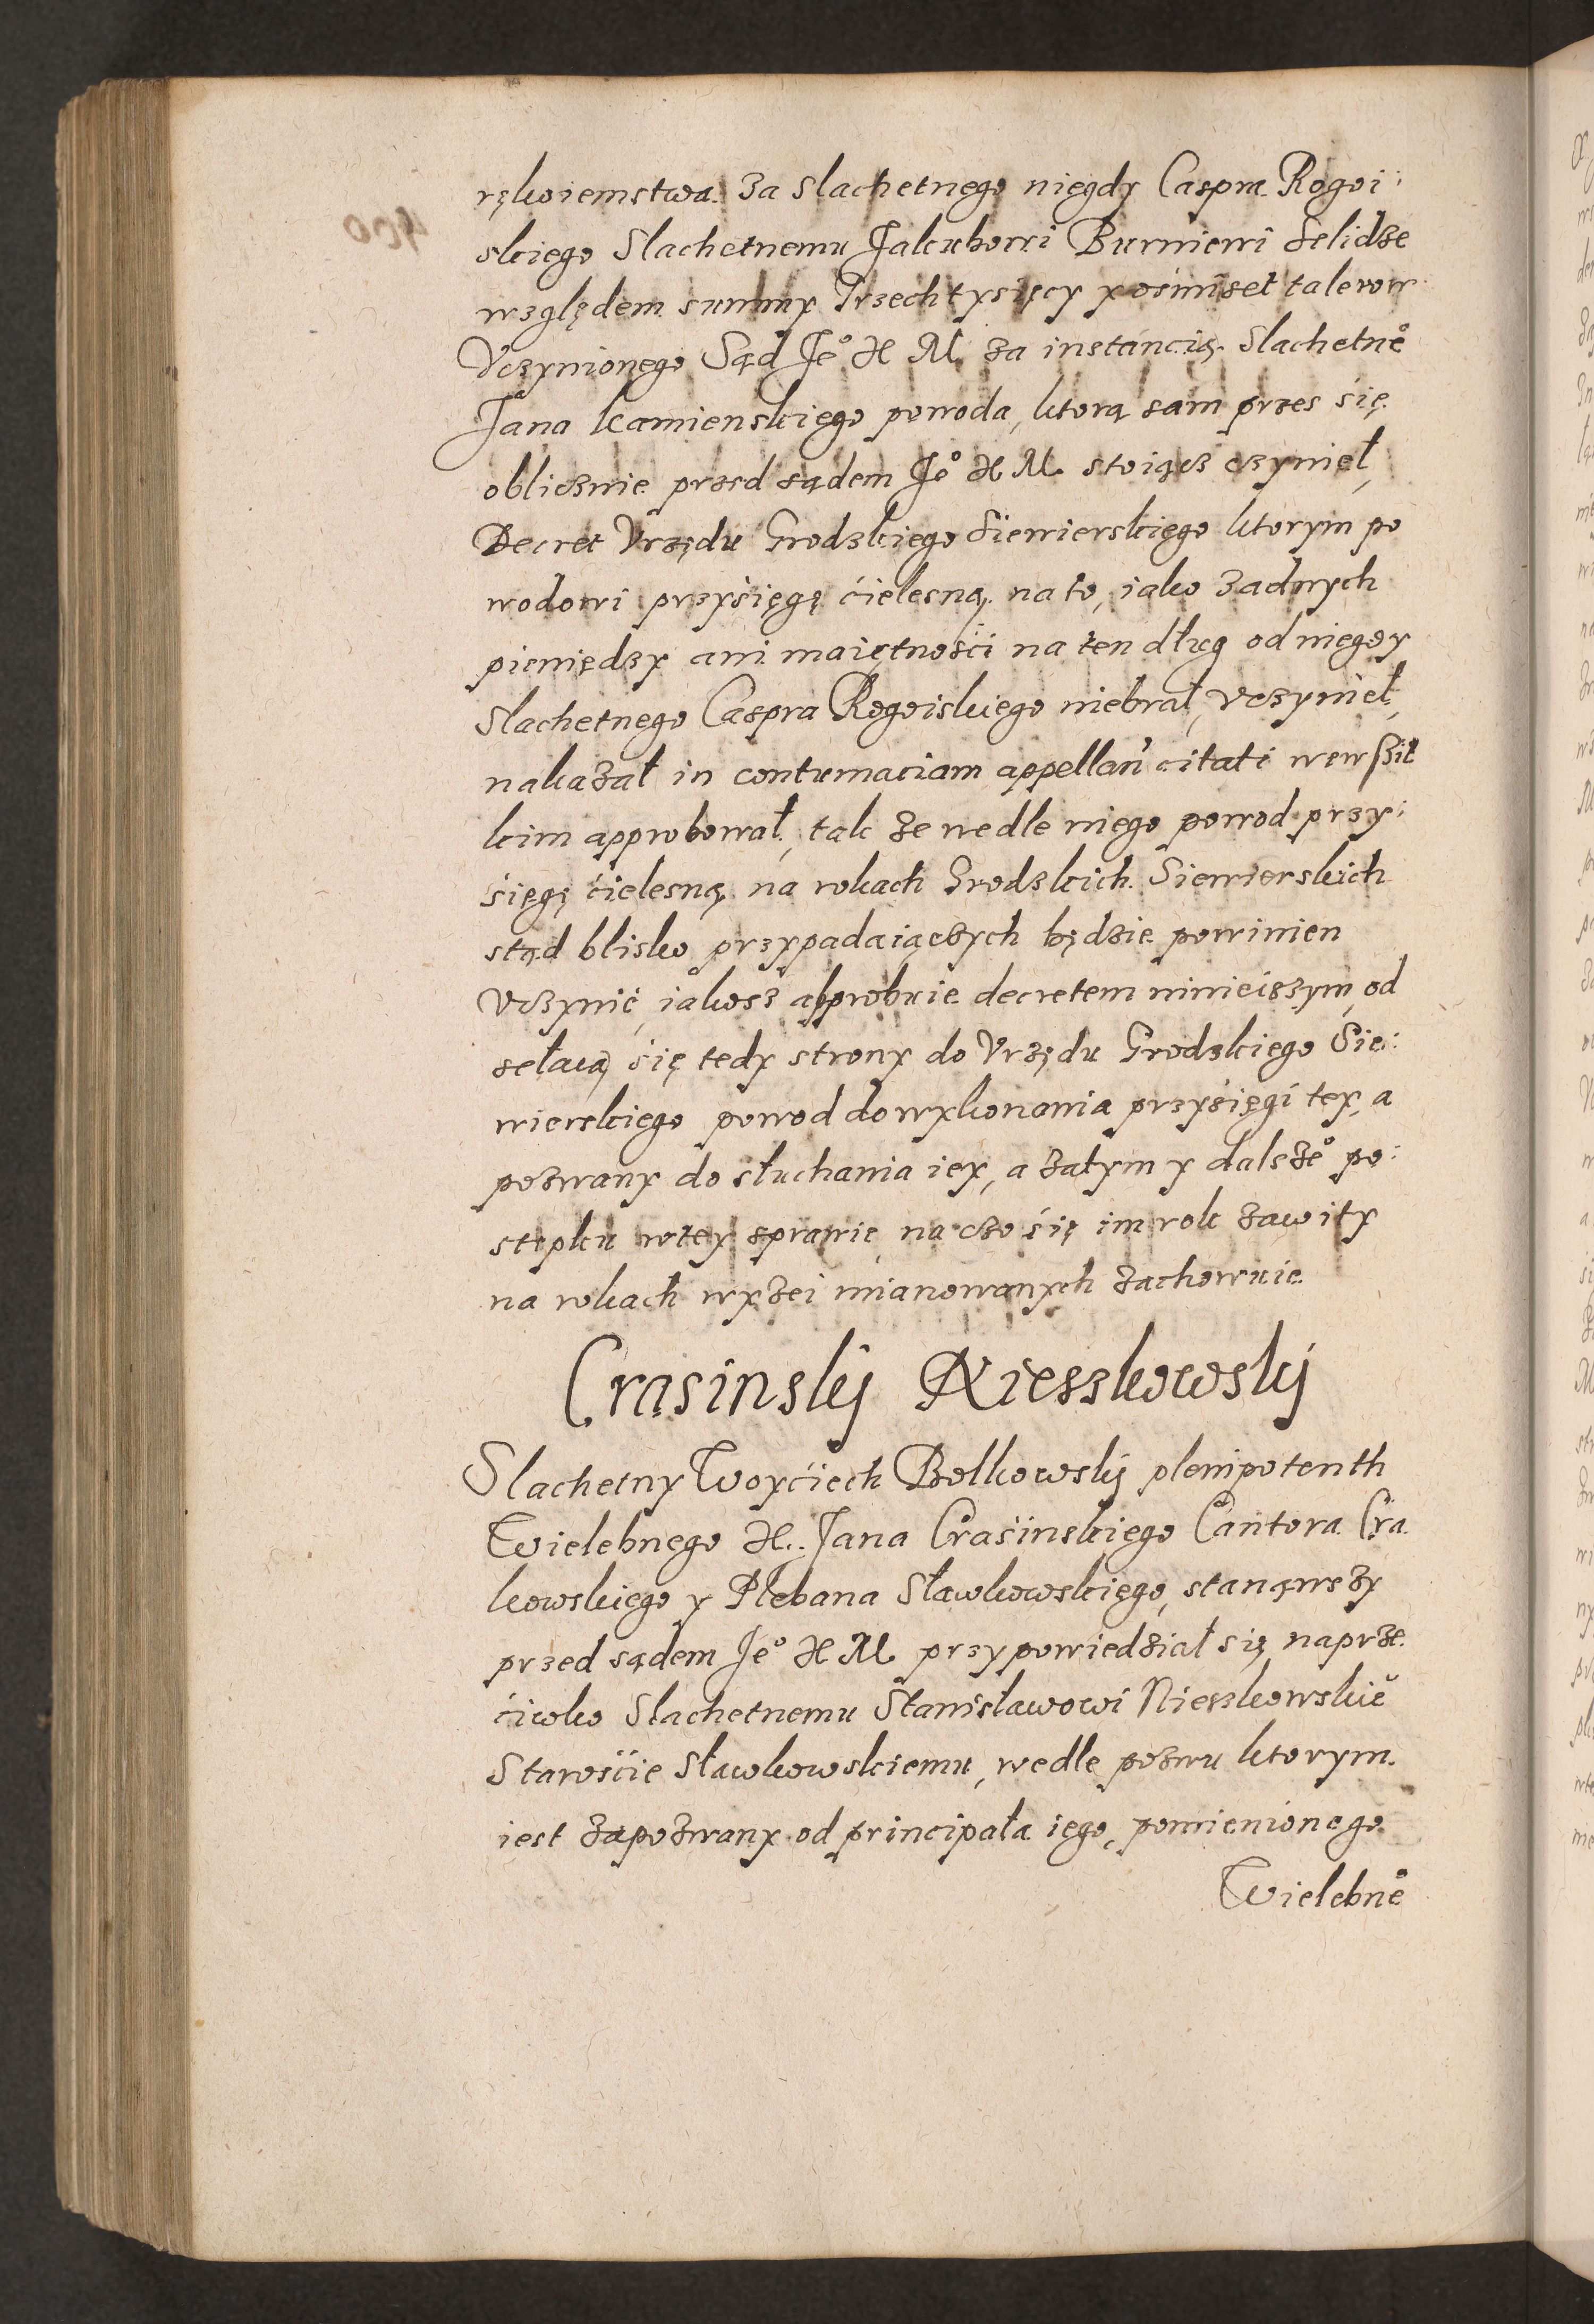 rękoiemstwa. za slachetnego niegdy Caspra Rogoi:
skiego Slachetnemu Jakubowi Burnieri Felidze
względem summy Trzech tysięcy y ośmiset talerow
Vczynionego Sąd Je° X M. za instancią. Slachetne°
Jana kamienskiego powoda, ktorą sam przes się
oblicznie przed sądem Je° X M. stoiącz czynieł,
Decret Vrzędu Grodzkiego Siewierskiego ktorym po
wodowi przysięgę ćielesną. na to, iako zadnych
pieniędzy ani maiętnośći na ten dług od niegdy
Slachetnego Caspra Rogoiskiego niebrał, vczynieł,
nakazał in contumaciam appellan' citati wewszit
kim approbował, tak ze wedle niego powod przy:
śięgę ćielesną na rokach Grodzkich. Siewierskich
stąd blisko przypadaiączych będzie powinien
vczynić, iakosz approbuie decretem ninieiszym, od
sełaią się tedy strony do Vrzędu Grodzkiego Sie:
wierskiego powod do wykonania przysięgi tey, a
pozwany do słuchania iey, a zatym y dalsze° po:
stępku wtey sprawie, na czo śię im rok zawity
na rokach wyzei mianowanych zachowuie.
Crasinskÿ Nieszkowskÿ
Slachetny Woyćiech Bolkowskÿ plenipotenth
Wielebnego X. Jana Crasinskiego Cantora Cra.
kowskiego y Plebana Sławkowskiego, stanąwszy
przed sądem Je° X M. przypowiedział się naprze.
ćiwko Slachetnemu Stanisławowi Nieszkowskie˘
Starośćie Sławkowskiemu, wedle pozwu ktorym.
iest zapozwany od principała iego, pomienionego
Wielebne°